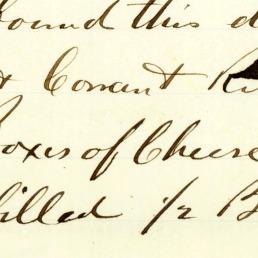 ound this d
Conant
oxes of Cheese
filled 1/2 B